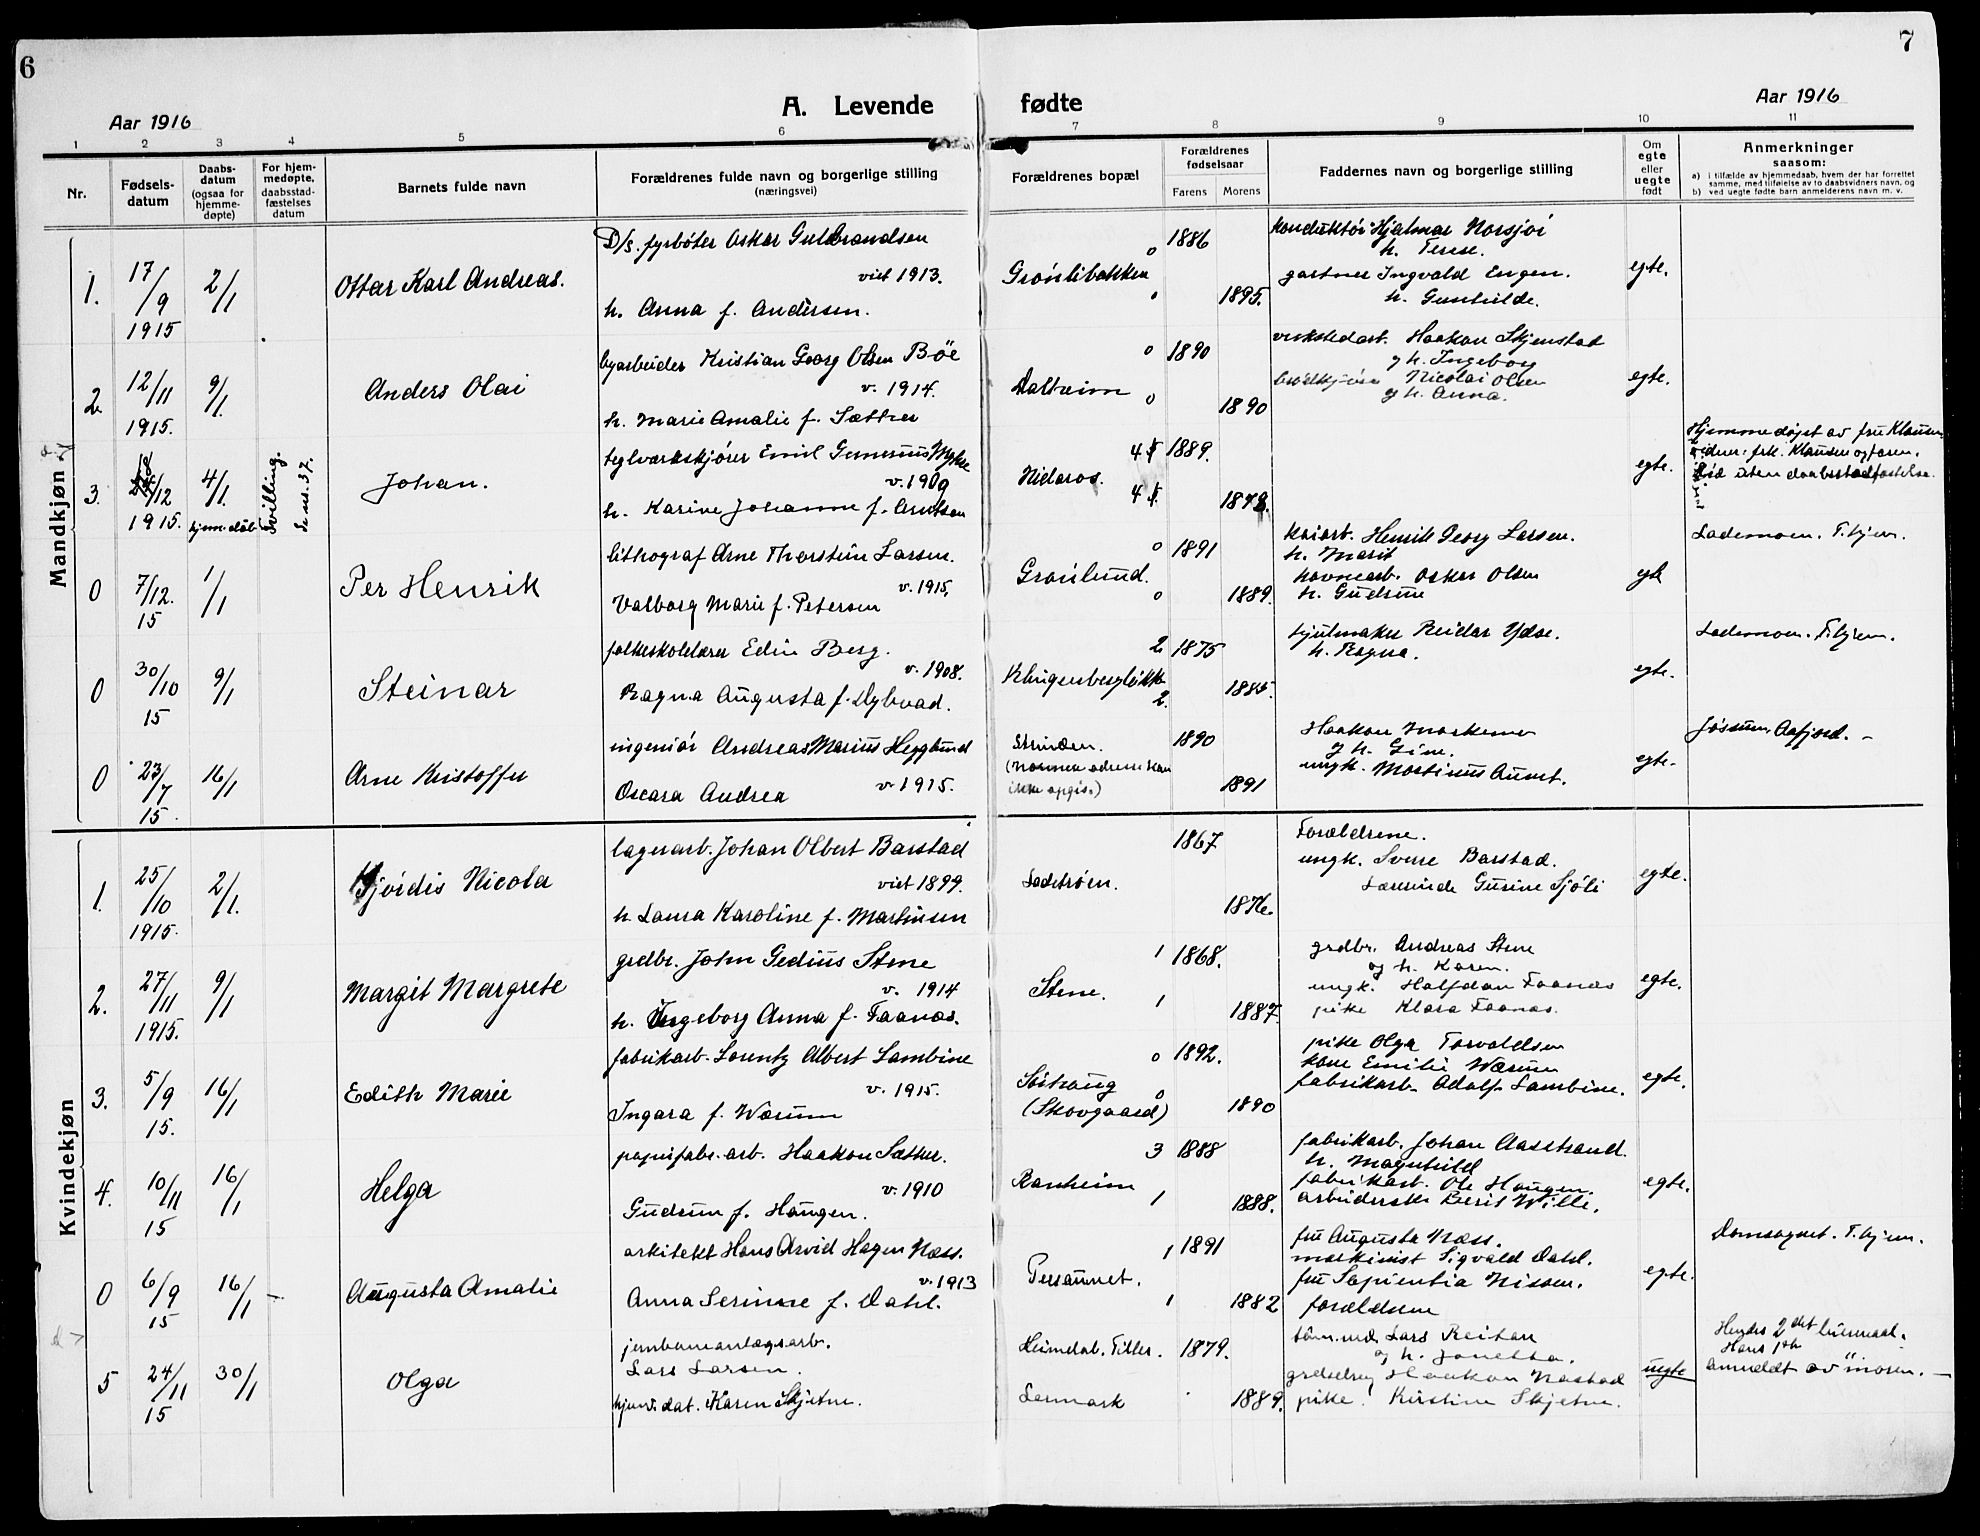 6
7
A. Levende fødte
Aar 1916
Aar 1916
1 2 3 4 5 6 7 8 9 10 11
Nr.
Fødsels-
datum
Daabs-
datum
(ogsaa for
hjemme-
døpte)
For hjem-
medøpte,
daabsstad-
fæstelses
datum
Barnets fulde navn
Forældrenes fulde navn og borgerlige stilling
(næringsvei)
Forældrenes bopæl
Forældrenes
fødselsaar
Farens
Morens
Faddernes navn og borgerlige stilling
Om
egte
eller
uegte
født
Anmerkninger
saasom:
a) i tilfælde av hjemmedaab, hvem der har forrettet
samme, med tilføielse av to daabsvidners navn, og
b) ved uegte fødte barn anmelderens navn m. v.
Mandkjøn
1.
17/9
1915
2/1
Ottar Karl Andreas.
D/s. fyrbøter Oskar Guldbrandsen
viet 1913.
h. Anna f. Andersen.
Grønlibakken
0
0
1886
1895.
konduktør Hjalmar Norsjø
h. Terese.
gartner Ingvald Engen.
h. Gunhilde.
egte.
2
12/11
1915.
9/1
Anders Olai
byarbeider Kristian Georg Olsen Bøe
v. 1914.
h. Marie Amalie f. Sætter
Dalheim
0
0
1890
1890
verkstedarb. Haakon Skjenstad
og h. Ingeborg
Nicolai Olsen
og h. Anna.
egte.
3.
/12
1915.
4/1
hjem.døb
Tvilling.
Se nr. 37.
Johan.
teglverkskjører Emil
v. 1909
h. Karine Johanne f. Arntsen
Nidaros.
4
4
1889.
egte.
Hjemmedøpt av fru Klausen
vidner: frk. Klausen og faren.
Død uten daabsstadfæstelse.
0
7/12.
15
1/1
Per Henrik
lithograf Arne Thorstein Larsen.
v. 1915.
Valborg Marie f. Petersen
Grønlund.
0
0
1891
1889.
Henrik Georg Larsen.
h. Marit
havnearb. Oskar Olsen
h. Gudrun
egte
Lademoen. T.hjem.
0
30/10
15
9/1
Steinar
folkeskolelærer Edin Berg.
v. 1908.
Ragna Augusta f. Dybvad.
Klingenbergløkke
2
2.
1875
hjulmaker Reidar Ydse.
h. Ragna.
egte.
Lademoen. T.hjem.
0
23/7
15.
16/1
Arne Kristoffer
ingeniør Andreas Marius Hegglund
v. 1915.
Oscara Andrea
Strinden.
(Nærmere adresse kan
ikke opgis.)
1890
1891
Haakon
og h. Gine.
ungk. Martinus Aunet.
egte.
Jøssum, Aafjord. –
Kvindekjøn
1.
25/10
1915.
2/1.
Hjørdis Nicola
lagerarb. Johan Olbert Barstad
viet 1899.
h. Laura Karoline f. Martinsen
Ladestrøen.
1867
1876.
Forældrene.
ungk. Sverre Barstad.
Lærerinde Gurine Sjøli
egte.
2.
27/11
1915.
9/1
Margit Margrete
grdbr. John Gedius Stene
v. 1914
h. Ingeborg Anna f. Faanæs.
Stene.
1
1
1868.
1887.
grdbr. Andreas Stene
og h. Karen.
ungk. Halfdan Faanæs
pike Klara Faanæs.
egte.
3.
5/9
15.
16/1
Edith Marie
fabrikarb. Lorentz Albert Lambine
v. 1915.
Ingara f. Wærum
Sørhaug
(Skovgaard)
0
0
1892.
1890
pike Olga Torvaldsen
kone Emilie Wærum
fabrikarb. Adolf Lambine.
egte.
4.
10/11
15
16/1
Helga
papirfabr. arb. Haakon Sæther.
v. 1910
Gudrun f. Haugen.
Ranheim
3
1
1888
1888.
fabrikarb. Johan Aasstrand.
h. Magnhild
fabrikarb. Ole Haugen.
arbeiderske Berit Wille.
egte.
0
6/9
15
16/1
–
Augusta Amalie
arkitekt Hans Arvid Hagen Næss.
v. 1913
Anna Serinne f. Dahl.
Persaunet.
1
1
1891
1882
fru Augusta Næss.
maskinist Sigvald Dahl.
fru Sapientia Nissen.
forældrene
egte.
Domsognet. T.hjem.
5
24/11
15
30/1
Olga
jernbaneanlægsarb.
Lars Larsen.
hjemv. dat. Karen Skjetne.
Heimdal. Tiller.
Lermark
1879.
1889.
tøm.md. Lars Reitan
og h. Jonetta.
Haakon Næstad
pike Kirstine Skjetne.
uegte
Hendes 2det leiermaal.
Hans 1ste
anmeldt av moren. –